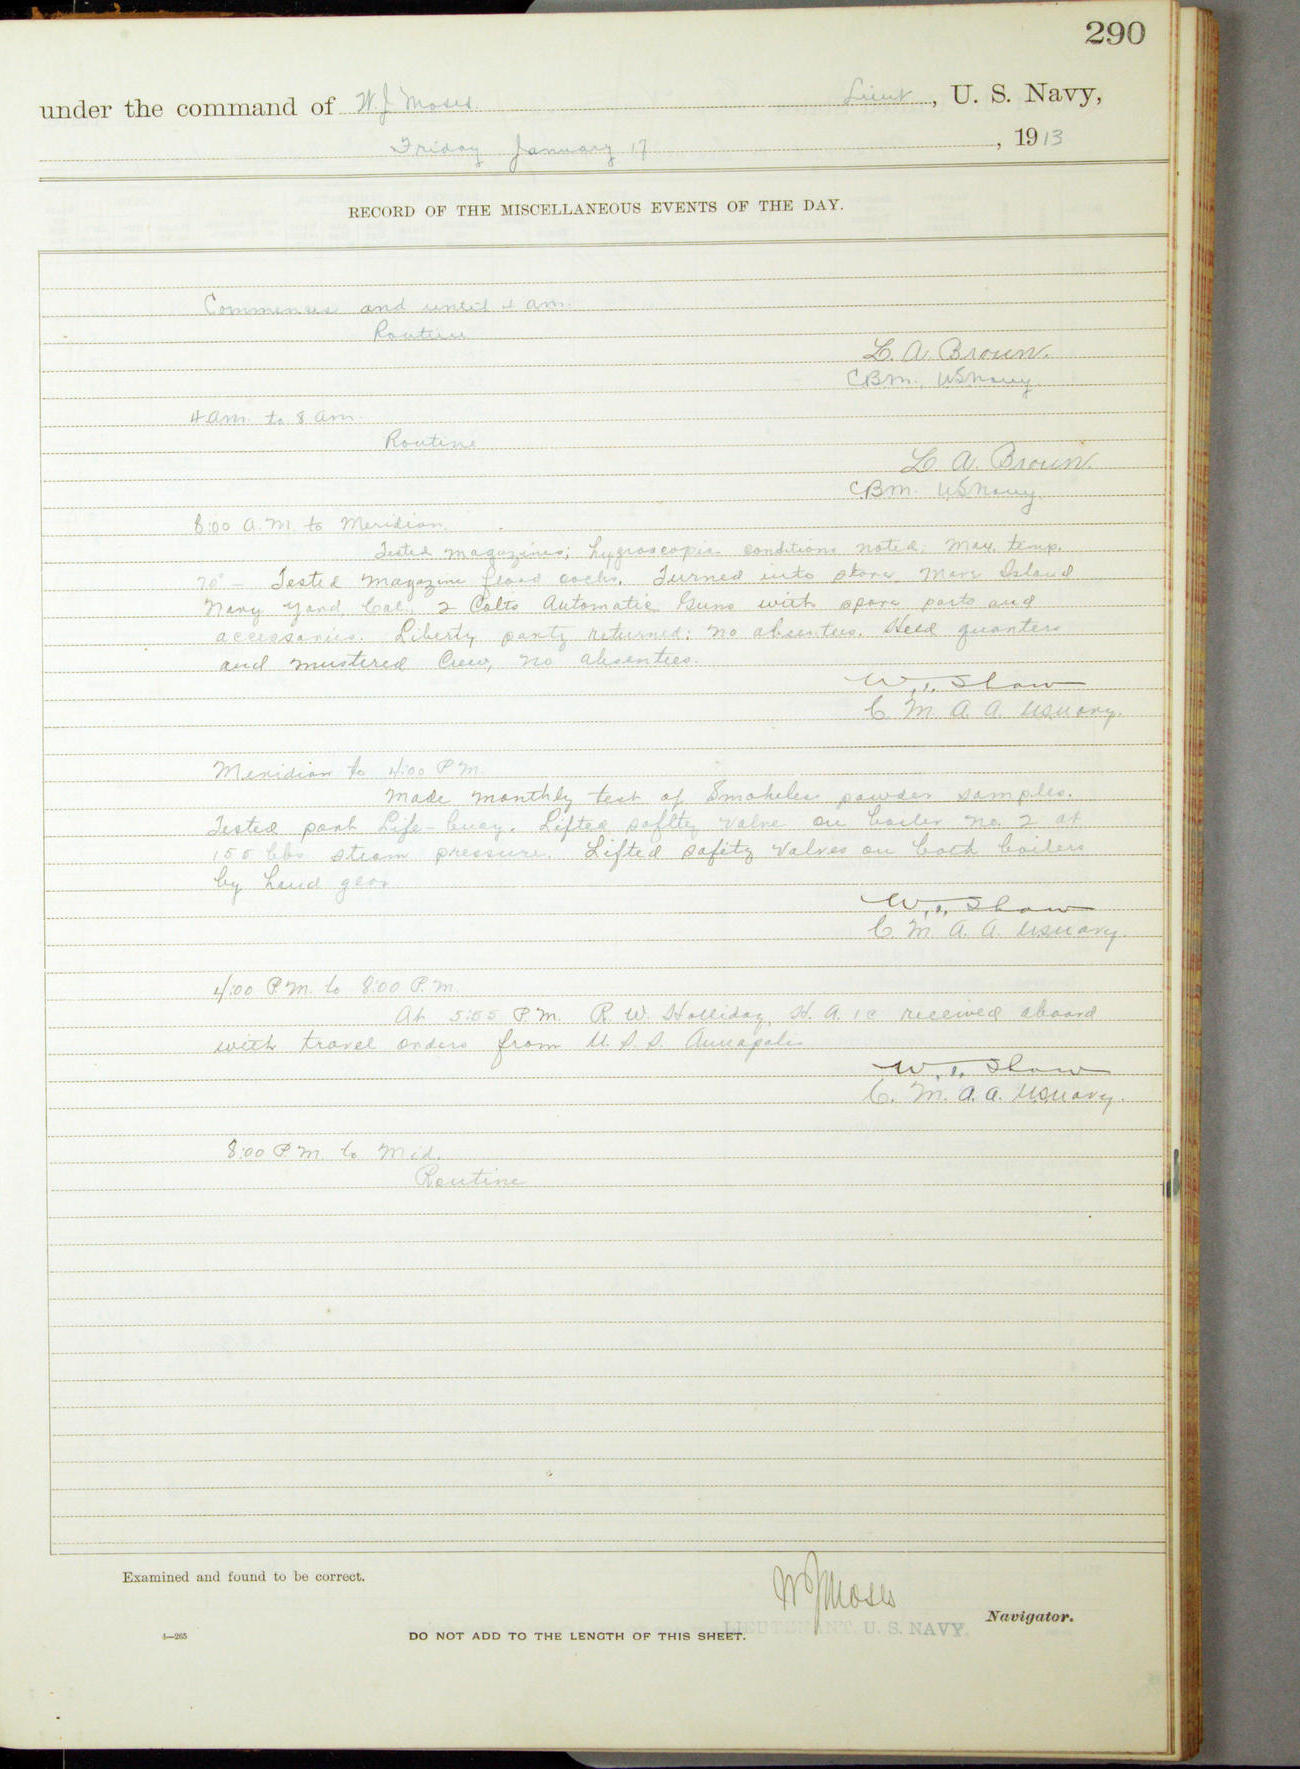 290
under the command of W. J. Moses Lieut, U. S. Navy,
Friday January 17, 1913
RECORD OF THE MISCELLANEOUS EVENTS OF THE DAY.
Commences and until 4 am.
Routine
L. A. Brown.
CBM. USNavy
4 am. to 8 am.
Routine
L. A. Brown
CBM. USNavy
8:00 A.M. to Meridian.
Tested magazines; hygroscopic conditions noted. Max. temp.
70° - Tested magazine flood cocks. Turned into store Mare Island
Navy Yard Cal. 2 Colts Automatic Guns with spare parts and
accessories. Liberty party returned; no absentees. Held quarters
and mustered Crew, no absentees.
W. Shaw
C. M. A. A. USNavy.
Meridian to 4:00 P.M.
Made monthly test of Smokeless powder samples.
Tested port Life-buoy. Lifted saftey valve on boiler no. 2 at
155 lbs steam pressure. Lifted safety valves on both boilers
by hand gear
W. Shaw
C. M. A. A. USNavy.
4:00 P.M. to 8:00 P.M.
At 5:55 P.M. R. W. Holliday, H. A. 1c received aboard
with travel orders from U. S. S. Annapolis
W. Shaw
C. M. A. A. USNavy.
8:00 P.M. to Mid.
Routine
Examined and found to be correct.
W J Moses
Navigator.
4—265
DO NOT ADD TO THE LENGTH OF THIS SHEET.
LIEUTENANT, U. S. NAVY.